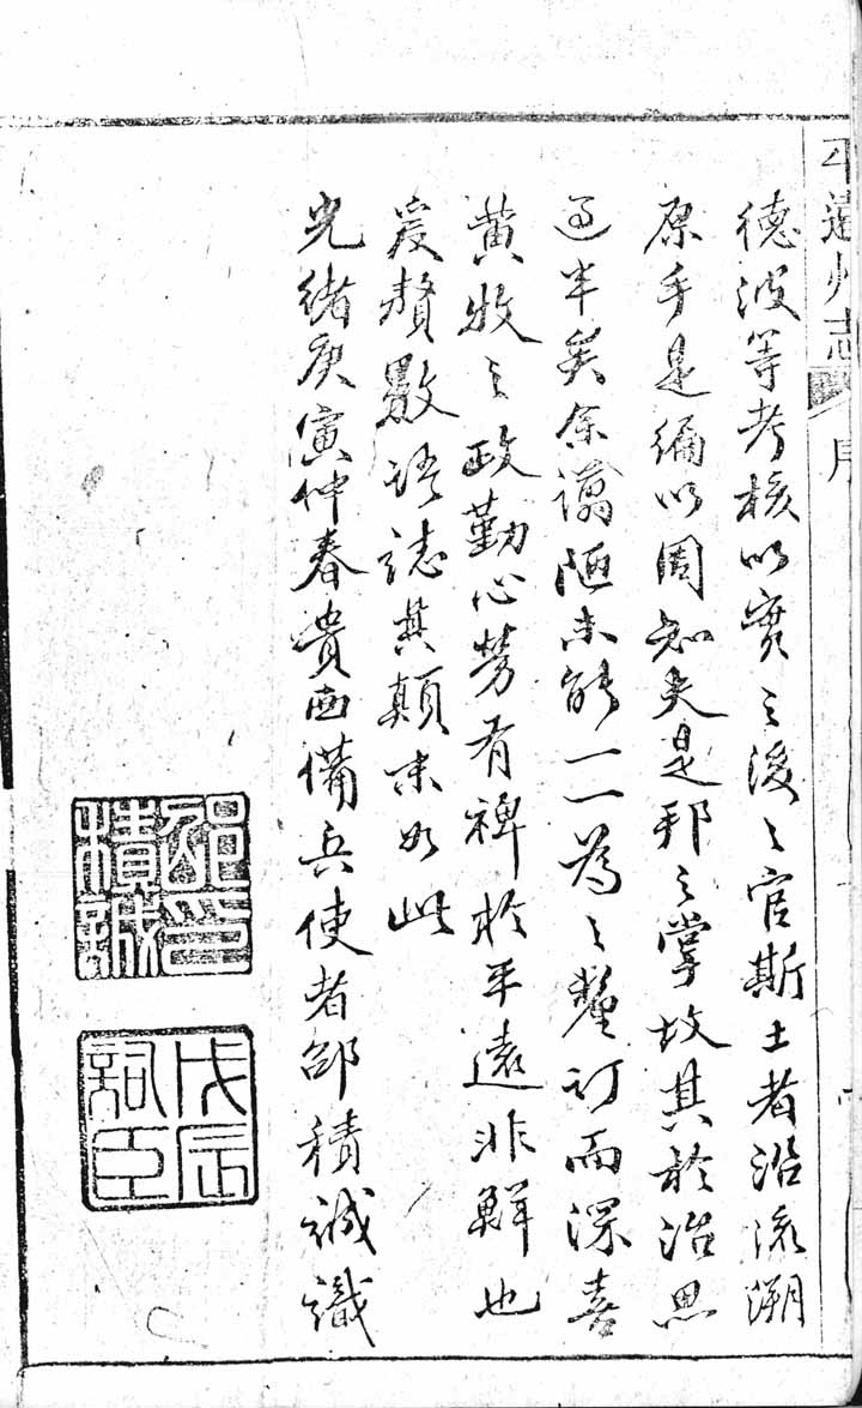 平遠州志 序
德波等考核以實之後之官斯土者沿流溯
原手是編以周知夫是邦之掌故其於治思
過半矣余谫陋未能一一為之釐訂而深喜
黄牧之政勤心勞有裨於平遠非鮮也
爰贅數語誌其顛末如此
光緒庚寅仲春貴西備兵使者邵積誠識
邵印積誠
戊辰詞臣